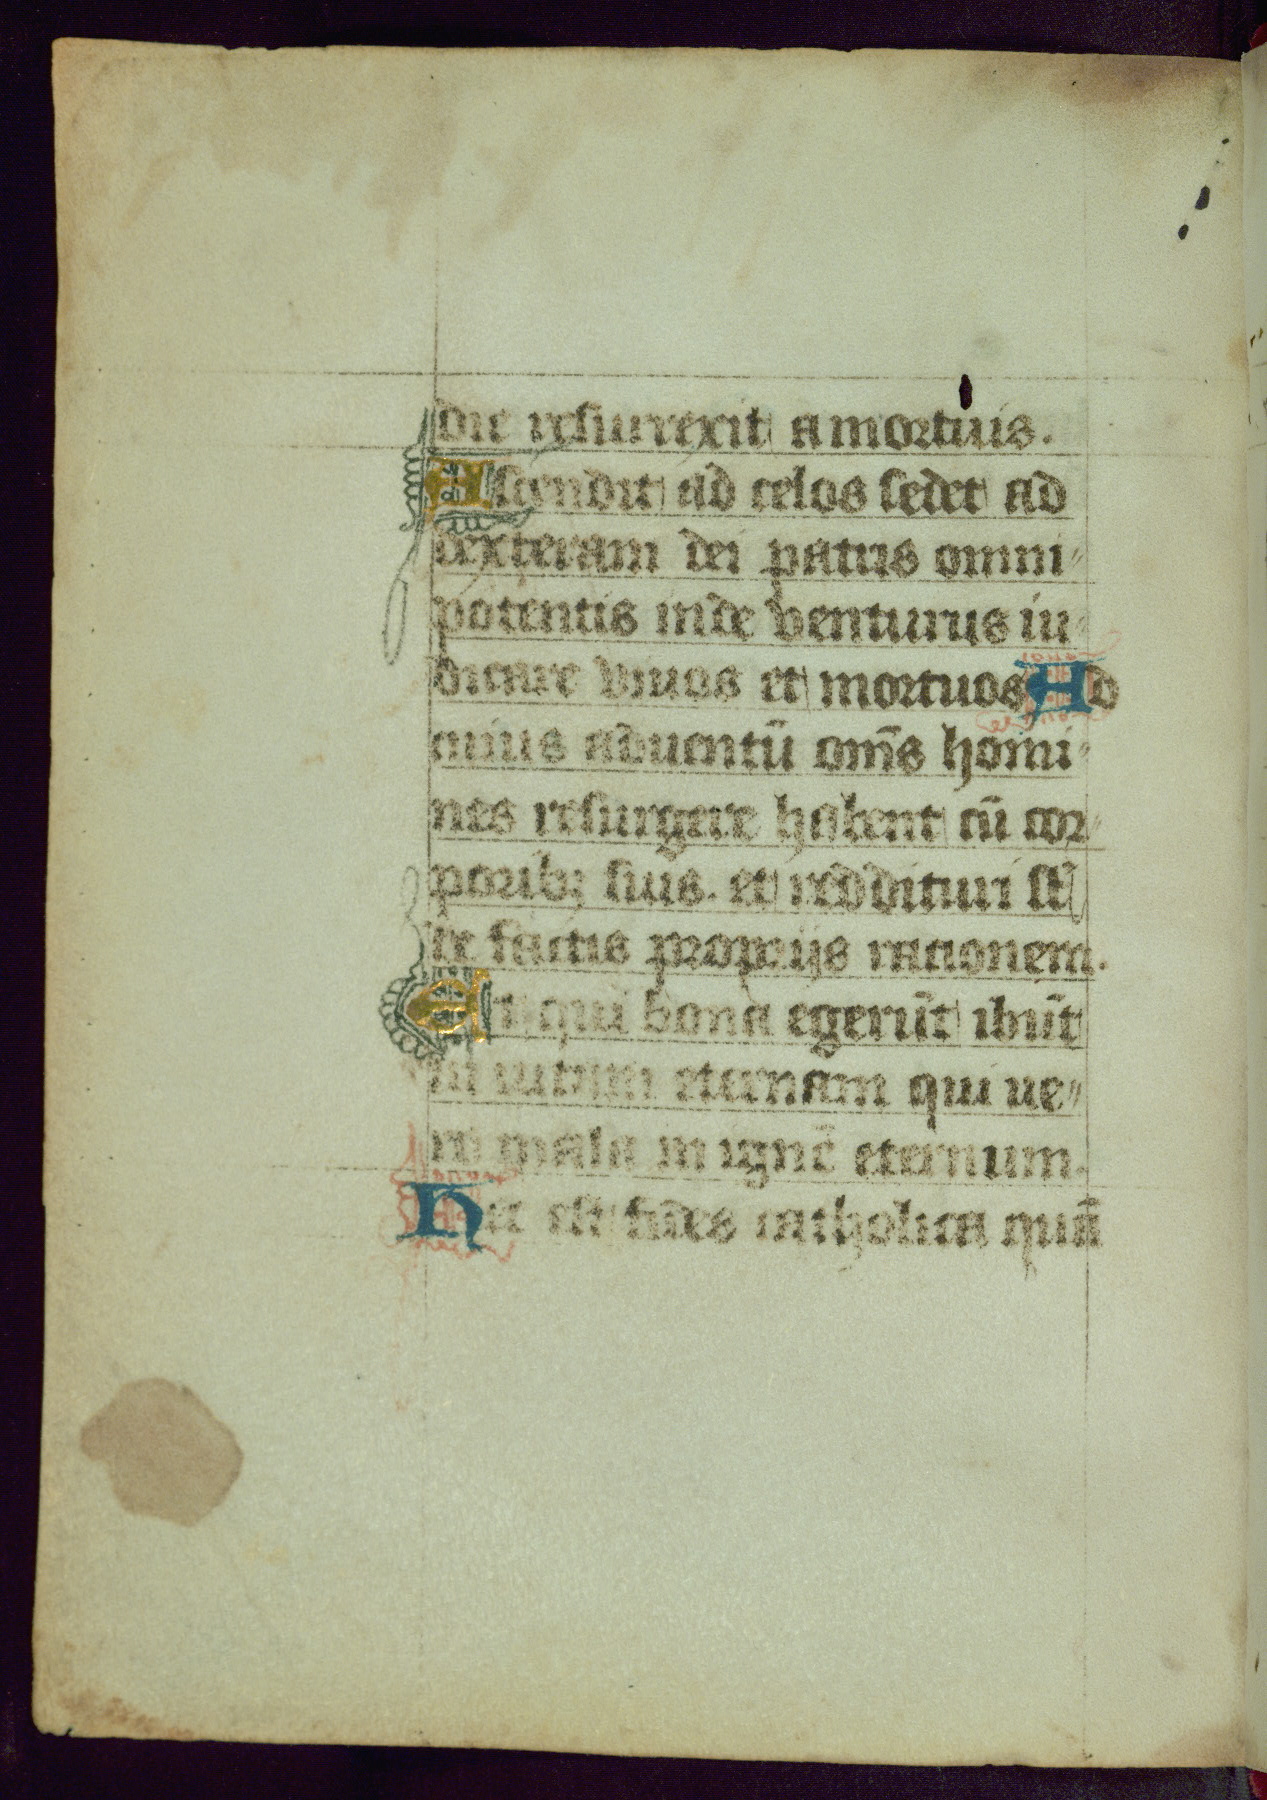 die resurrexit a mortuis.
Ascendit ad celos sedet ad
dexteram dei patris omni
potentis inde venturus iu
dicare viuos et mortuos Ad
cuius aduentū om̄s homi
nes resurgere habent cū cor
porib; suis. et reddituri st̄
de factis proprijs rationem.
Et qui bona egerūt ibūt
in uitam eternam qui ue
ro mala in ignē eternum.
Hec est fides catholica quā